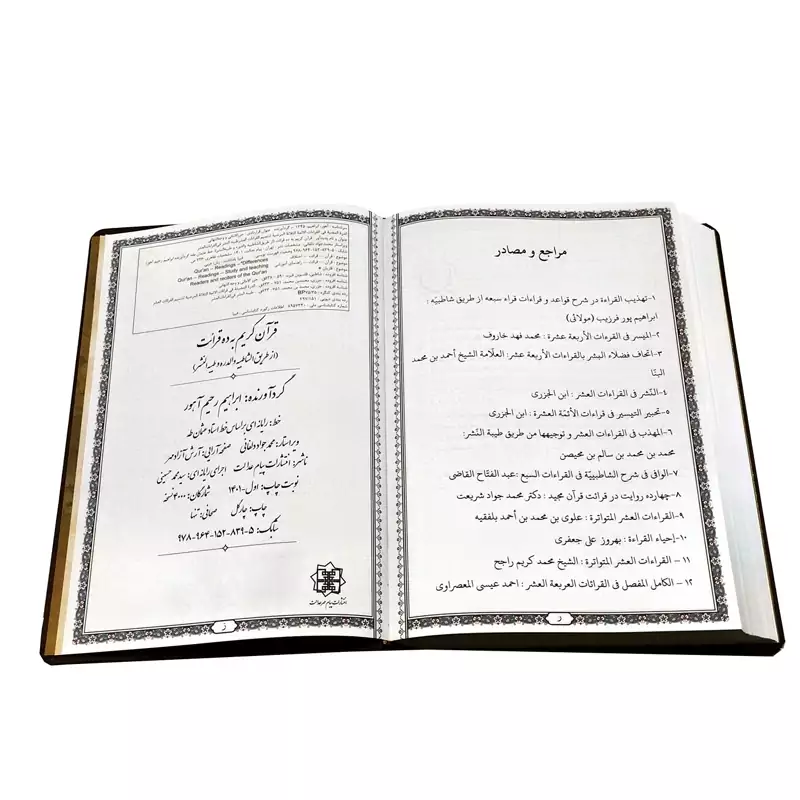 مراجع و مصادر
۱-تهذیب القراءة در شرح قواعد و قراءات قراء سبعه از طریق شاطبیّه :
ابراهیم پور فرزیب (مولائی)
۲-المیسر فی القراءات الأربعة عشرة : محمد فهد خاروف
۳-اتحاف فضلاء البشر بالقراءات الأربعة عشر: العلّامة الشیخ أحمد بن محمد
البنّا
۴-النّشر فی القراءات العشر : ابن الجزری
۵-تحبیر التیسیر فی قراءات الأئمّة العشرة : ابن الجزری
۶-المهذب فی القراءات العشر و توجیهها من طریق طیبة النّشر:
محمد بن محمد بن سالم بن محیصن
۷-الوافی فی شرح الشاطبیّة فی القراءات السبع :عبد الفتّاح القاضی
۸-چهارده روایت در قرائت قرآن مجید : دکتر محمد جواد شریعت
۹-القراءات العشر المتواترة : علوی بن محمد بن أحمد بلفقیه
۱۰-إحیاء القراءة : بهروز علی جعفری
۱۱ - القراءات العشر المتواترة : الشیخ محمد کریم راجح
۱۲ - الکامل المفصل فی القرائات العربعة العشر : احمد عیسی المعصراوی
Qur'an -- Readings -- *Differences
Qur'an -- Readings -- Study and teaching
Readers and reciters of the Qur'an
قرآن کریم به ده قرائت
(از طریق الشاطبیه والدره و طیبه النشر)
گردآورنده: ابراهیم رحیم آهور
خط: رایانه‌ای بر اساس خط استاد عثمان طه
ویراستار: محمد جواد دلفانی صفحه آرایی: آرش آزادمهر
ناشر: انتشارات پیام عدالت اجرای رایانه‌ای: سید محمد حسینی
نوبت چاپ: اول-۱۴۰۱ شمارگان: ۴۰۰۰ نسخه
چاپ: چارگل صحافی: تنها
شابک: ۵-۸۳۹-۱۵۲-۹۶۴-۹۷۸
ر
ز